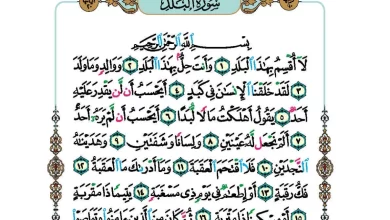 سُورَةُ الْبَلَدِ
بِسْمِ اللَّهِ الرَّحْمَٰنِ الرَّحِيمِ
لَا أُقْسِمُ بِهَٰذَا الْبَلَدِ ١ وَأَنتَ حِلٌّ بِهَٰذَا الْبَلَدِ ٢ وَوَالِدٍ وَمَا وَلَدَ
٣ لَقَدْ خَلَقْنَا الْإِنسَٰنَ فِي كَبَدٍ ٤ أَيَحْسَبُ أَن لَّن يَقْدِرَ عَلَيْهِ
أَحَدٌ ٥ يَقُولُ أَهْلَكْتُ مَالًا لُّبَدًا ٦ أَيَحْسَبُ أَن لَّمْ يَرَهُ أَحَدٌ
٧ أَلَمْ نَجْعَل لَّهُ عَيْنَيْنِ ٨ وَلِسَانًا وَشَفَتَيْنِ ٩ وَهَدَيْنَٰهُ
النَّجْدَيْنِ ١٠ فَلَا اقْتَحَمَ الْعَقَبَةَ ١١ وَمَا أَدْرَىٰكَ مَا الْعَقَبَةُ ١٢
فَكُّ رَقَبَةٍ ١٣ أَوْ إِطْعَٰمٌ فِي يَوْمٍ ذِي مَسْغَبَةٍ ١٤ يَتِيمًا ذَا مَقْرَبَةٍ
١٥ أَوْ مِسْكِينًا ذَا مَتْرَبَةٍ ١٦ ثُمَّ كَانَ مِنَ الَّذِينَ ءَامَنُوا وَتَوَاصَوْا